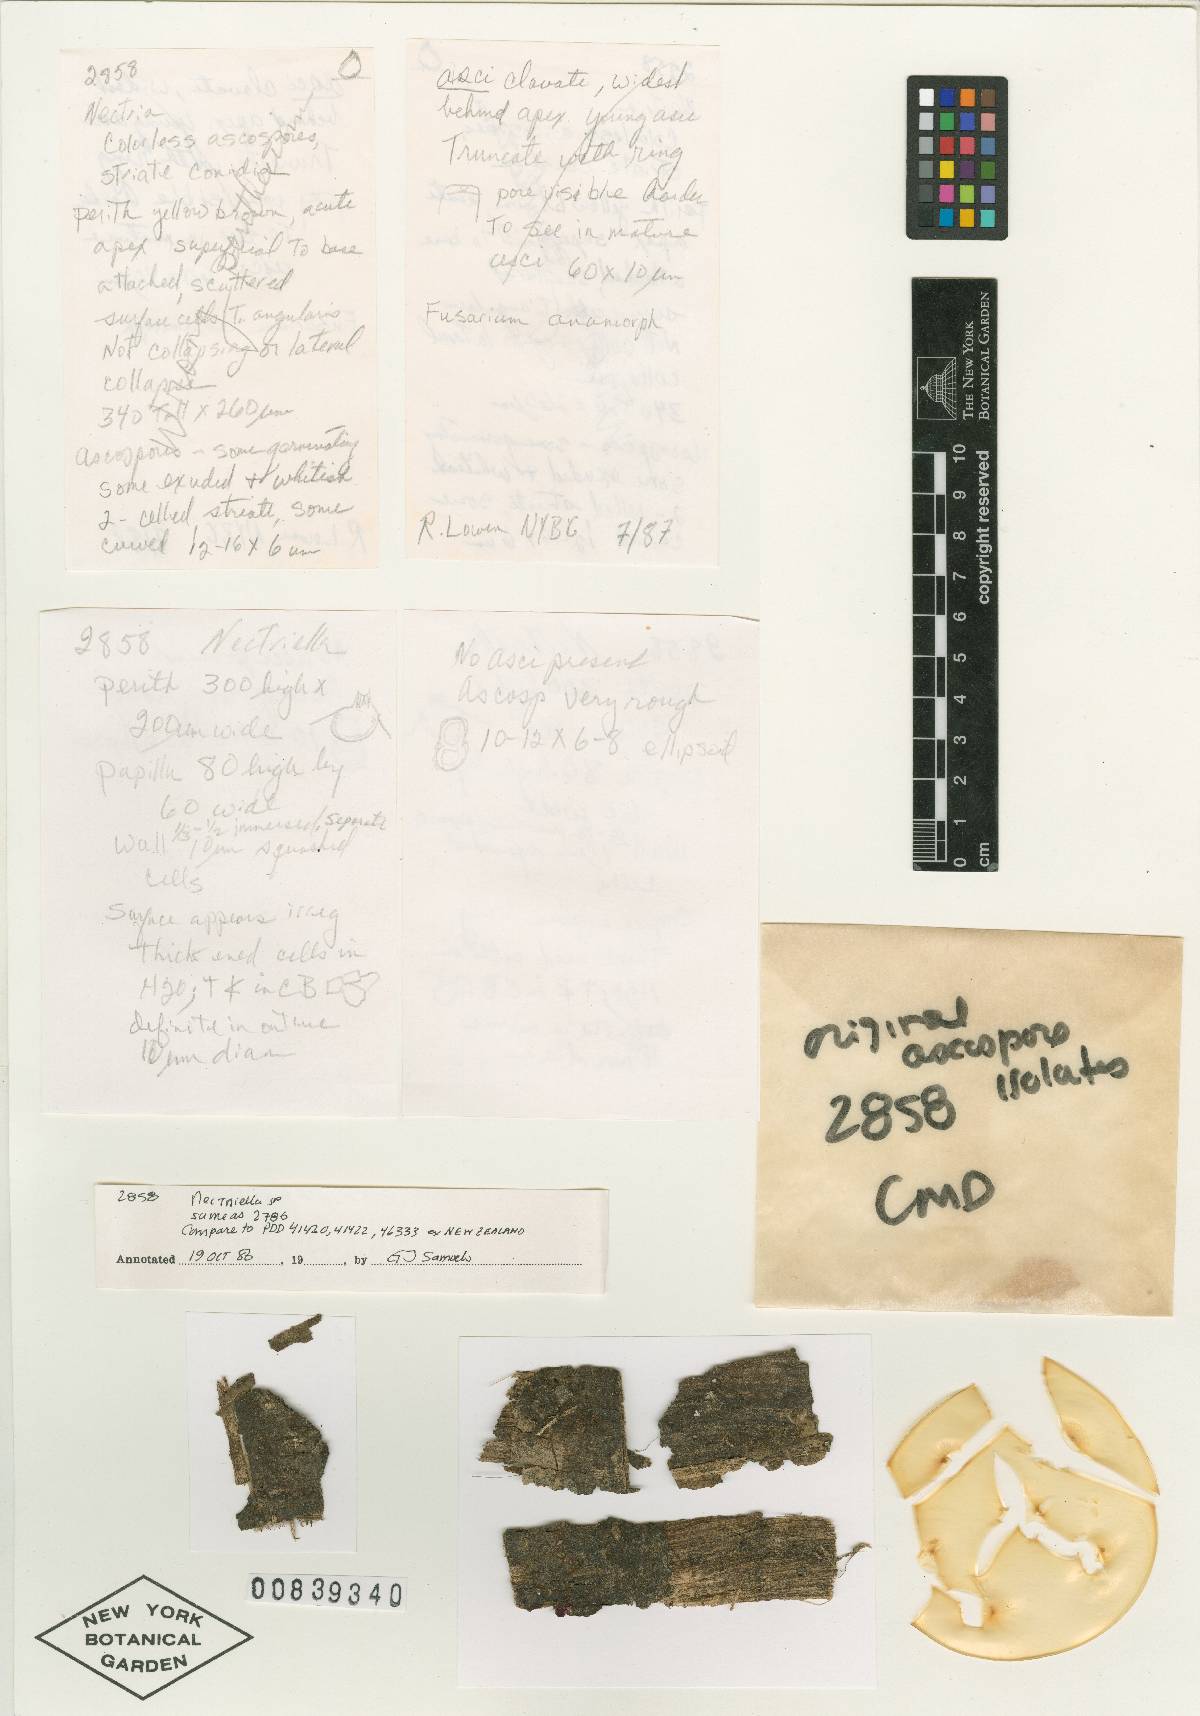 2858
Nectria
Colorless ascospores,
striate conidia
perith yellow brown, acute
apex superficial to base
attached, scattered
surface cells T. angularis
Not collapsing or lateral
collapse
340 Tall x 260 µm
ascospores - some germinating
some exuded + whitish
2-celled striate, some
curved 12-16 x 6 um
asci clavate, widest
behind apex young asci
Truncate with ring
pore visible harder
To see in mature
asci 60 x 10 µm
Fusarium anamorph
R. Lowen NYBG 7/87
THE NEW YORK
BOTANICAL GARDEN
0 1 2 3 4 5 6 7 8 9 10
cm
copyright reserved
2858 Nectriella
perith 300 high x
200 µm wide
papilla 80 high by
60 wide
1/3-1/2 immersed, separate
Wall 10 µm squashed
cells
Surface appears irreg
thickened cells in
H20; + K in CB
definite in outline
10 µm diam
No asci present
Ascosp very rough
10-12 x 6-8 ellipsoid
original
ascospore
isolates
2858
CMD
2858 Nectriella sp
same as 2786
Compare to PDD 41420, 41422, 46333 ex NEW ZEALAND
Annotated 19 OCT 86, 19, by GJ Samuels
00839340
NEW YORK
BOTANICAL
GARDEN